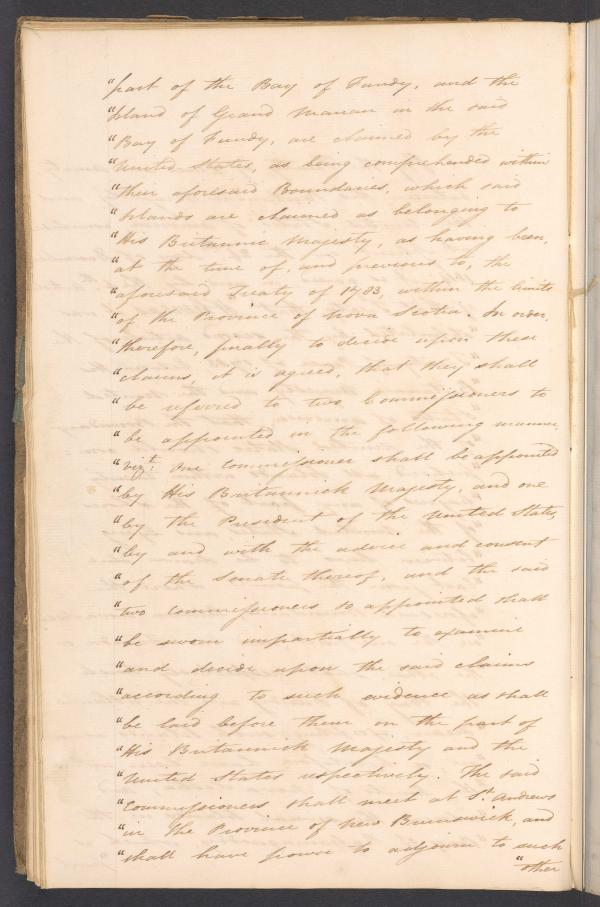 "part of the Bay of Fundy, and the
"Island of Grand Manan in the said
"Bay of Fundy, are claimed by the
"United States, as being comprehended within
"their aforesaid Boundaries, which said
"Islands are claimed as belonging to
"His Britannic Majesty, as having been,
"at the time of, and previous to, the
"aforesaid Treaty of 1783, within the limits
"of the Province of Nova Scotia. In order,
"therefore, finally to decide upon these
"claims, it is agreed, that they shall
"be referred to two Commissioners to
"be appointed in the following manner,
"vizt: One Commissioner shall be appointed
"by His Britannick Majesty, and one
"by the President of the United States,
"by and with the advice and consent
"of the Senate thereof, and the said
"two Commissioners so appointed shall
"be sworn impartially to examine
"and decide upon the said claims
"according to such evidence as shall
"be laid before them on the part of
"His Britannick Majesty and the
"United States respectively. The said
"Commissioners shall meet at St. Andrews
"in the Province of New Brunswick, and
"shall have power to adjourn to such
"other